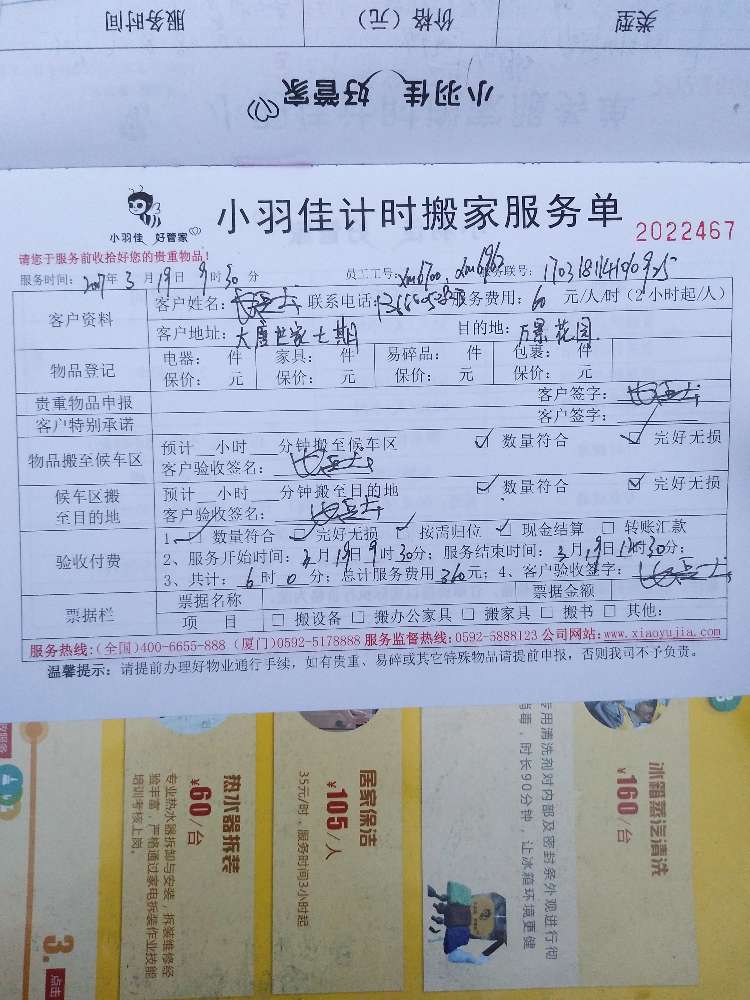 类型 价格（元） 服务时间
小羽佳 好管家
小羽佳 好管家
小羽佳计时搬家服务单
2022467
请您于服务前收拾好您的贵重物品！
服务时间：2017年3月19日9时30分 员工工号： 服务联号：
客户资料
客户姓名： 联系电话： 服务费用：60元/人/时（2小时起/人）
客户地址：大唐世家七期 目的地：万景花园
物品登记
电器： 件 家具： 件 易碎品： 件 包裹： 件
保价： 元 保价： 元 保价： 元 保价： 元
贵重物品申报 客户签字：
客户特别承诺 客户签字：
物品搬至候车区
预计__小时___分钟搬至候车区 ☑ 数量符合 ☑ 完好无损
客户验收签名：
候车区搬至目的地
预计__小时___分钟搬至目的地 ☑ 数量符合 ☑ 完好无损
客户验收签名：
验收付费
1、☑ 数量符合 ☑ 完好无损 ☑ 按需归位 ☑ 现金结算 □ 转账汇款
2、服务开始时间：3月19日9时30分；服务结束时间：3月19日1时30分；
3、共计：6时0分；总计服务费用360元；4、客户验收签字：
票据栏
票据名称 票据金额
项 目 □ 搬设备 □ 搬办公家具 □ 搬家具 □ 搬书 □ 其他：
服务热线：(全国)400-6655-888 (厦门)0592-5178888 服务监督热线：0592-5888123 公司网站：www.xiaoyujia.com
温馨提示：请提前办理好物业通行手续，如有贵重、易碎或其它特殊物品请提前申报，否则我司不予负责。
冰箱蒸汽清洗
¥160/台
专用清洗剂对内部及密封条外观进行彻
消毒，时长90分钟，让冰箱环境更健
居家保洁
¥105/人
35元/时，服务时间3小时起
热水器拆装
¥60/台
专业热水器拆卸与安装，拆装维修经
验丰富，严格通过家电拆装作业技能
培训考核上岗。
3.
点击